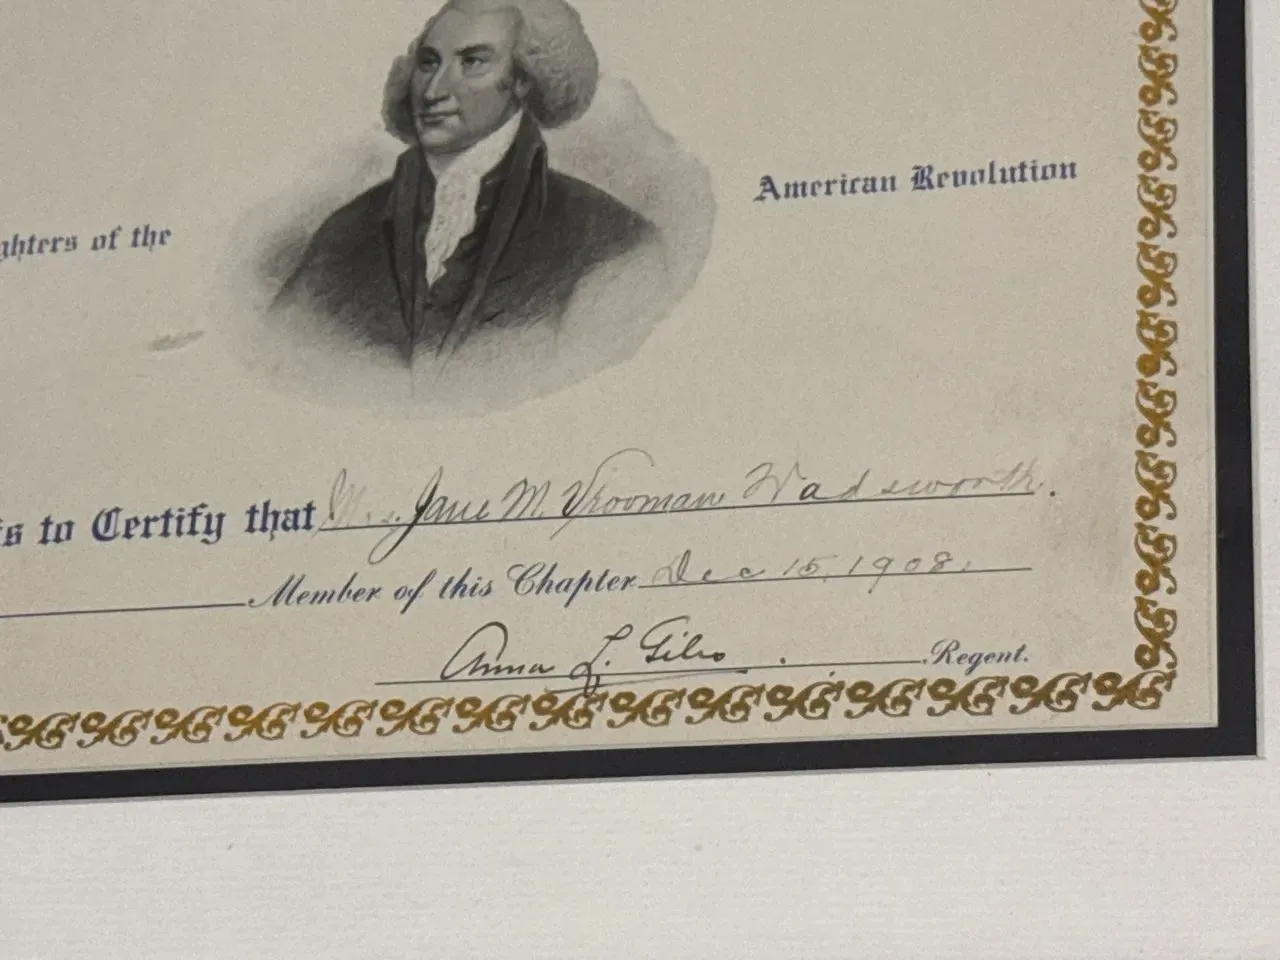 ghters of the American Revolution
s to Certify that Mrs. Jane M. Vrooman Wadsworth.
Member of this Chapter Dec 15, 1908.
Anna L. Gilso . Regent.